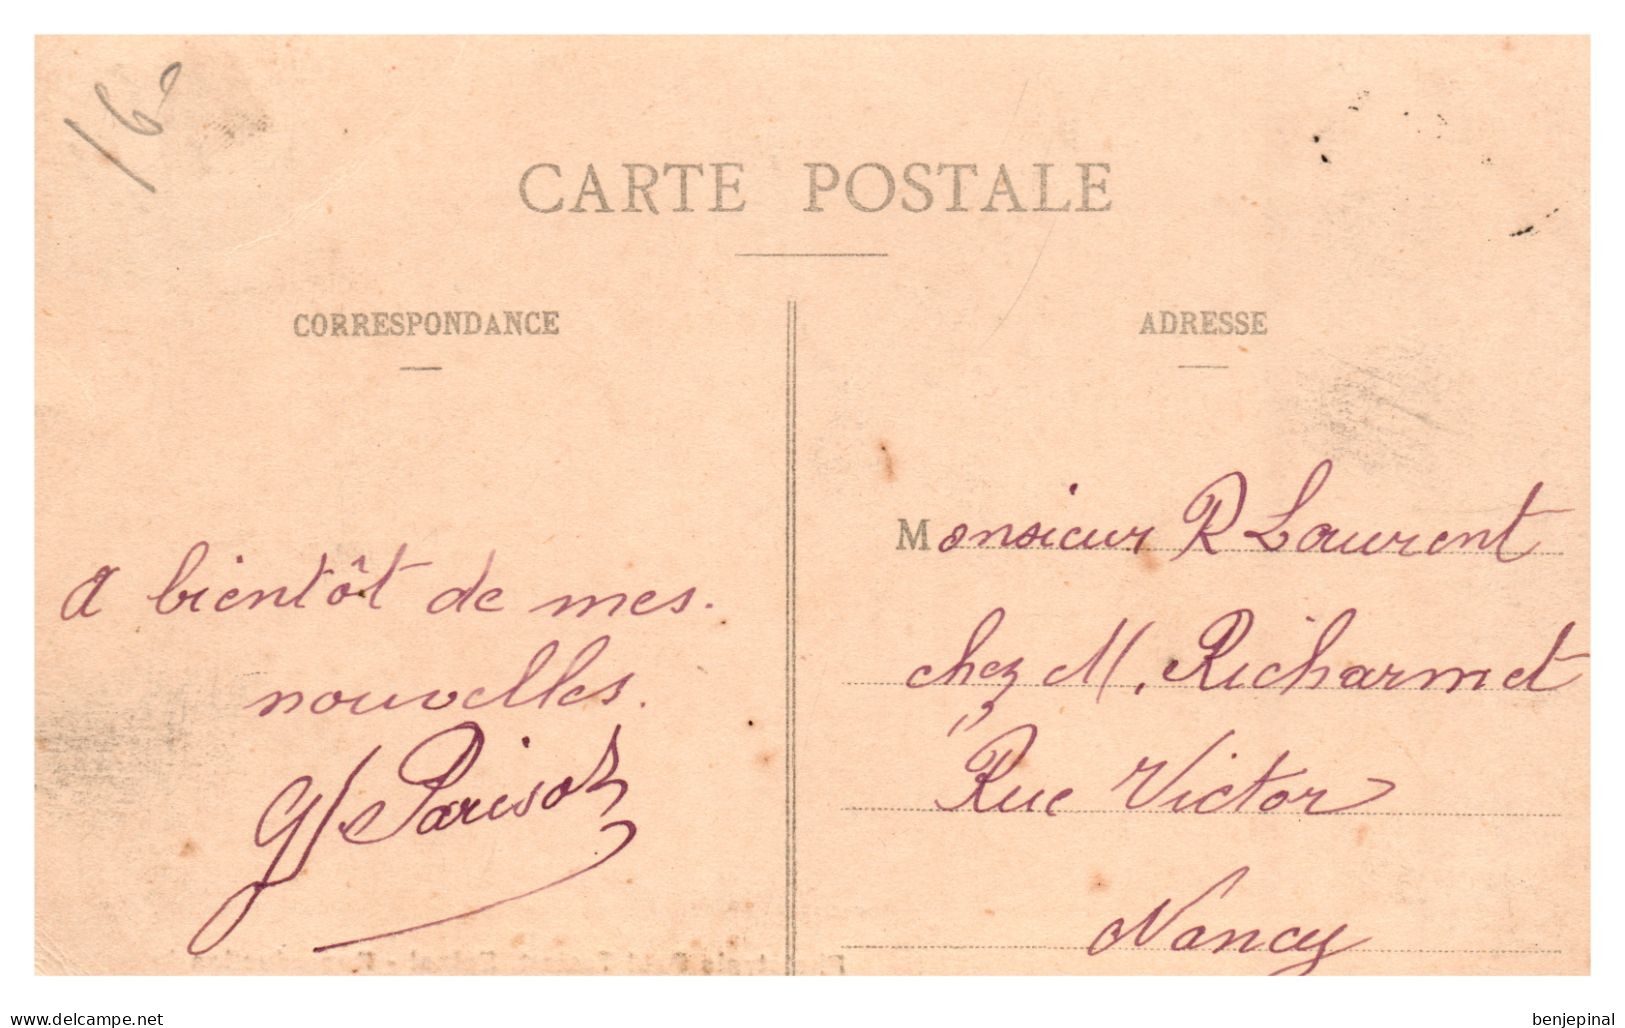 16
CARTE POSTALE
CORRESPONDANCE
ADRESSE
a bientôt de mes.
nouvelles.
G. Parisot
Monsieur R Laurent
chez M. Richarmet
Rue Victor
Nancy
www.delcampe.net
benjepinal